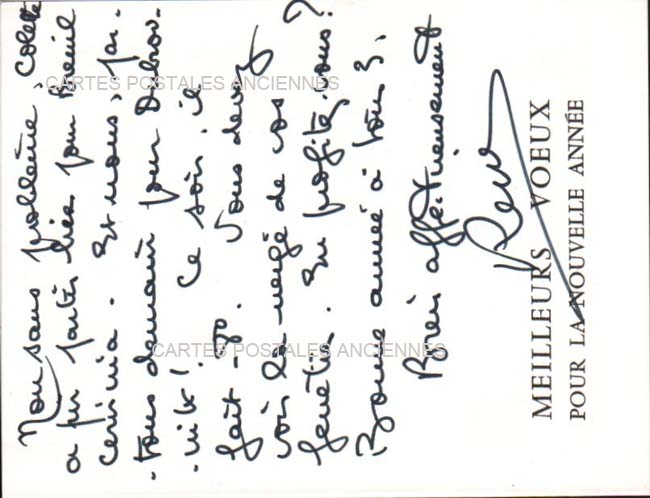 Non sans problème, Colette
a pu partir hier pour Breuil
Cervinia. Et nous, par-
-tons demain pour Dubrov-
-nik! Ce soir, il
fait -70. Vous devez
voir la neige de vos
fenêtres. En profitez-vous?
Bonne année à tous 3.
Bien affectueusement
MEILLEURS VOEUX
POUR LA NOUVELLE ANNÉE
CARTES POSTALES ANCIENNES
CARTES POSTALES ANCIENNES